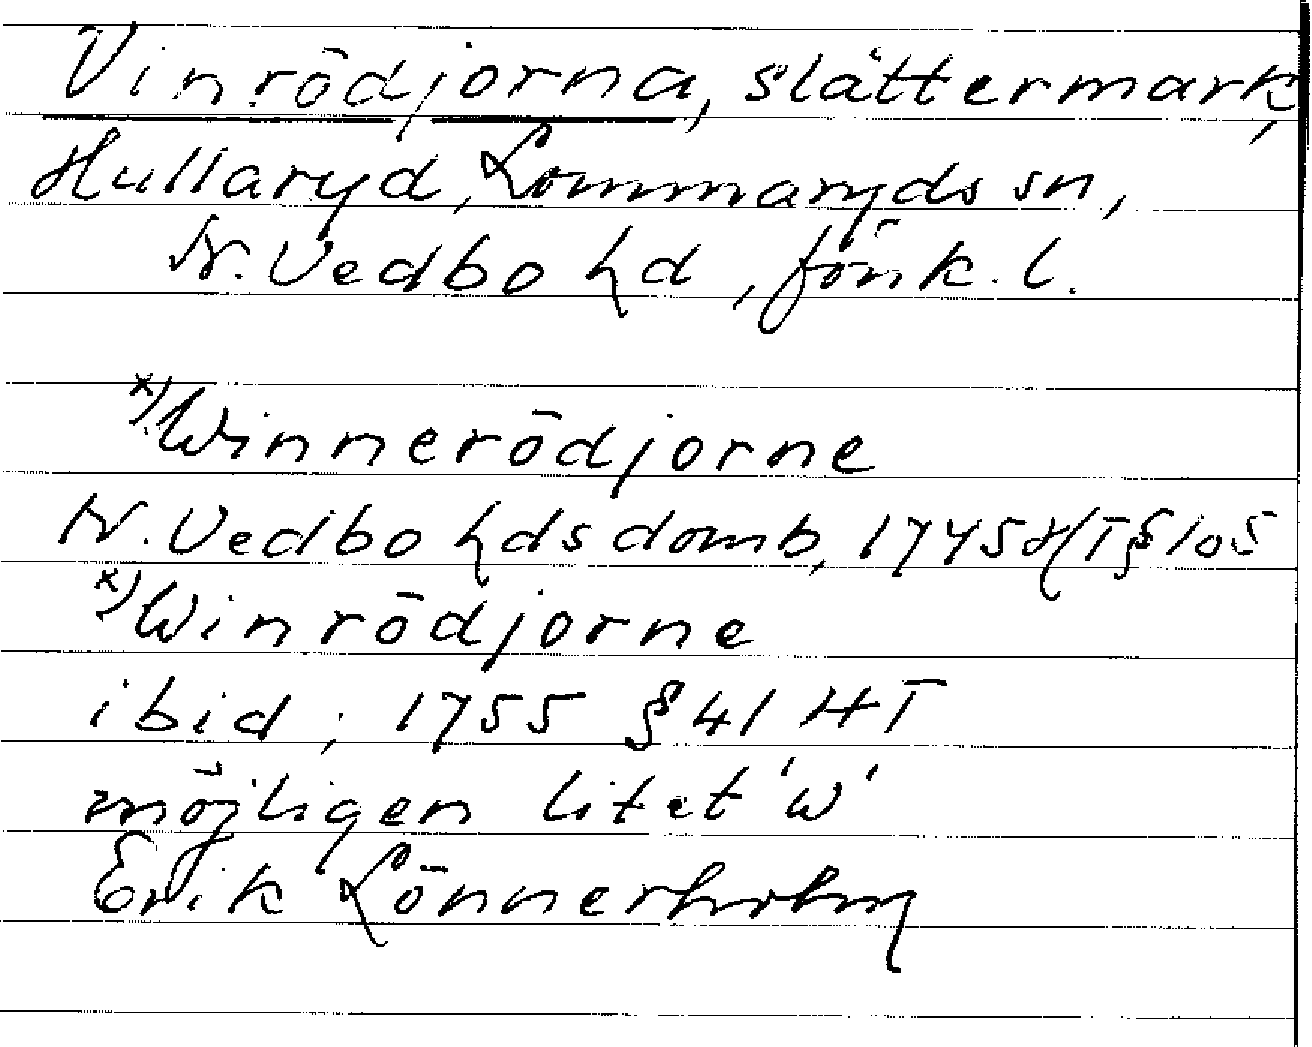 Vinrödjorna, slåttermark,
Hullaryd, Lommaryds sn,
N. Vedbo hd, Jönk. l.
x) Winnerödjorne
N. Vedbo hds domb, 1745 HT § 105
x) Winrödjorne
ibid, 1755 § 41 HT
möjligen litet 'w'
Erik Lönnerholm